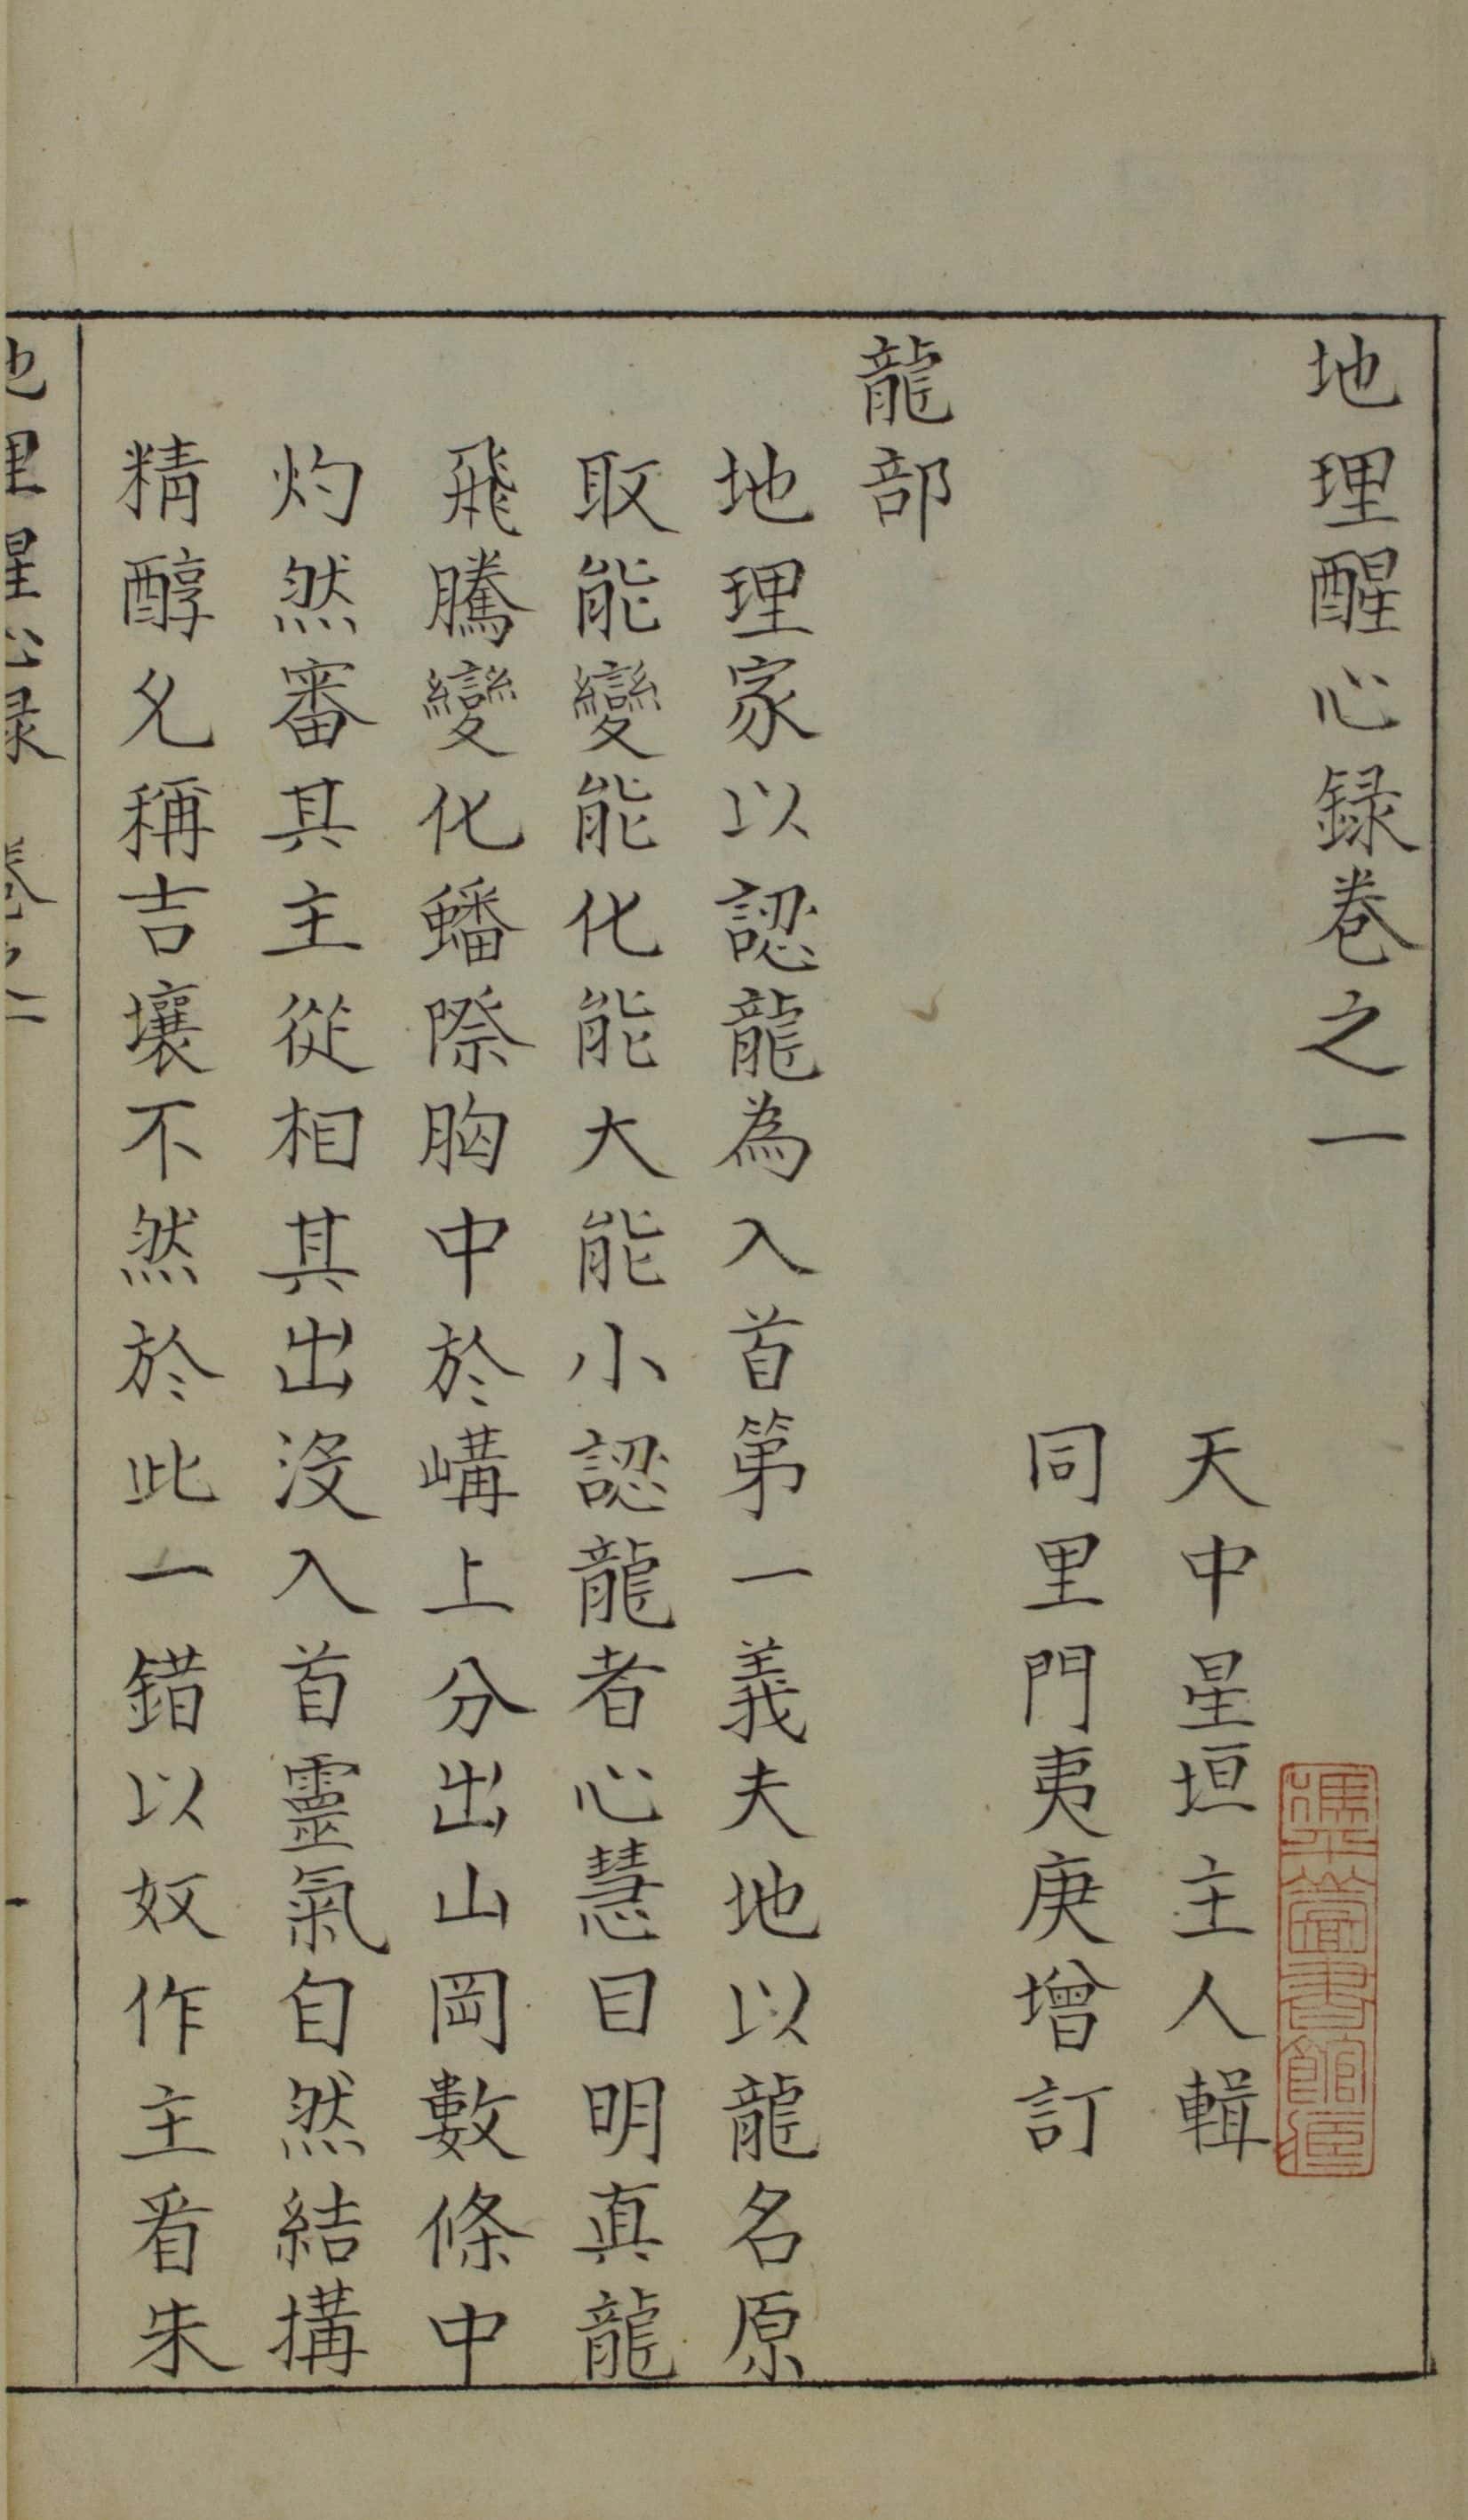 地理醒心録卷之一
天中星垣主人輯
同里門夷庚增訂
龍部
地理家以認龍為入首第一義夫地以龍名原
取能變能化能大能小認龍者心慧目明真龍
飛騰變化蟠際胸中於嶙上分出山岡數條中
灼然審其主從相其出没入首靈氣自然結搆
精醇允稱吉壤不然於此一錯以奴作主看朱
地理醒心録 卷之一 一